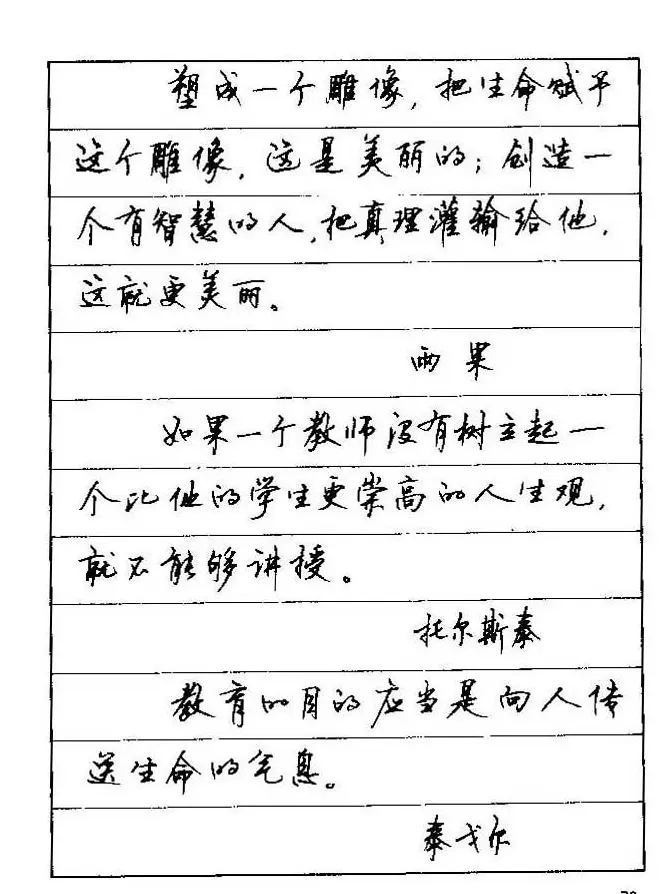 塑成一个雕像，把生命赋予
这个雕像，这是美丽的；创造一
个有智慧的人，把真理灌输给他，
这就更美丽。
雨果
如果一个教师没有树立起一
个比他的学生更崇高的人生观，
就不能够讲授。
托尔斯泰
教育的目的应当是向人传
送生命的气息。
泰戈尔